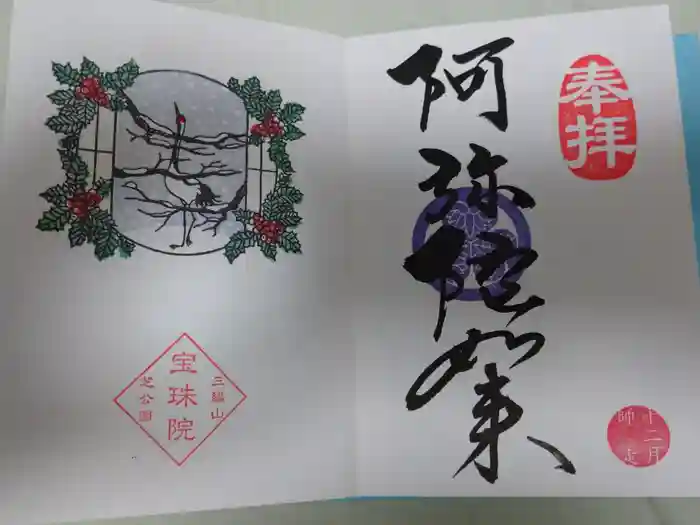 奉拝
阿弥陀如来
十二月
師走
三縁山
宝珠院
芝公園